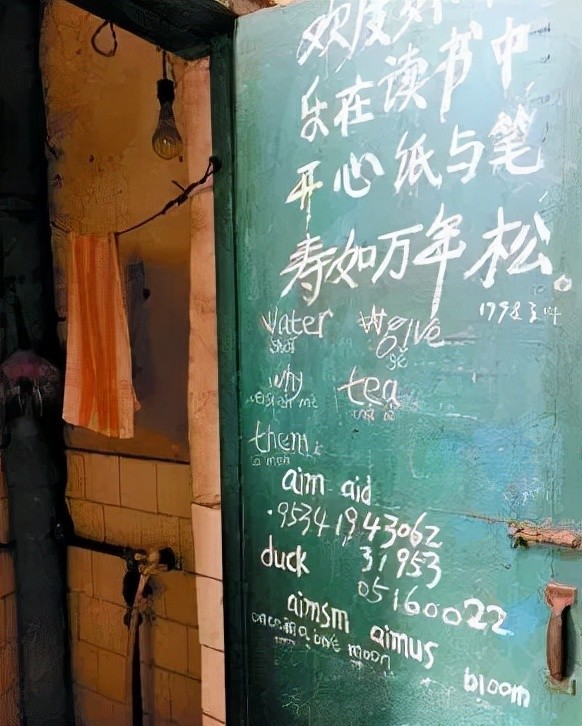 欢度
乐在读书中
开心纸与笔
寿如万年松。
1998 3
water give
why tea
them
aim aid
.95341943062
duck 31953
05160022
aimsm aimus
moon
bloom